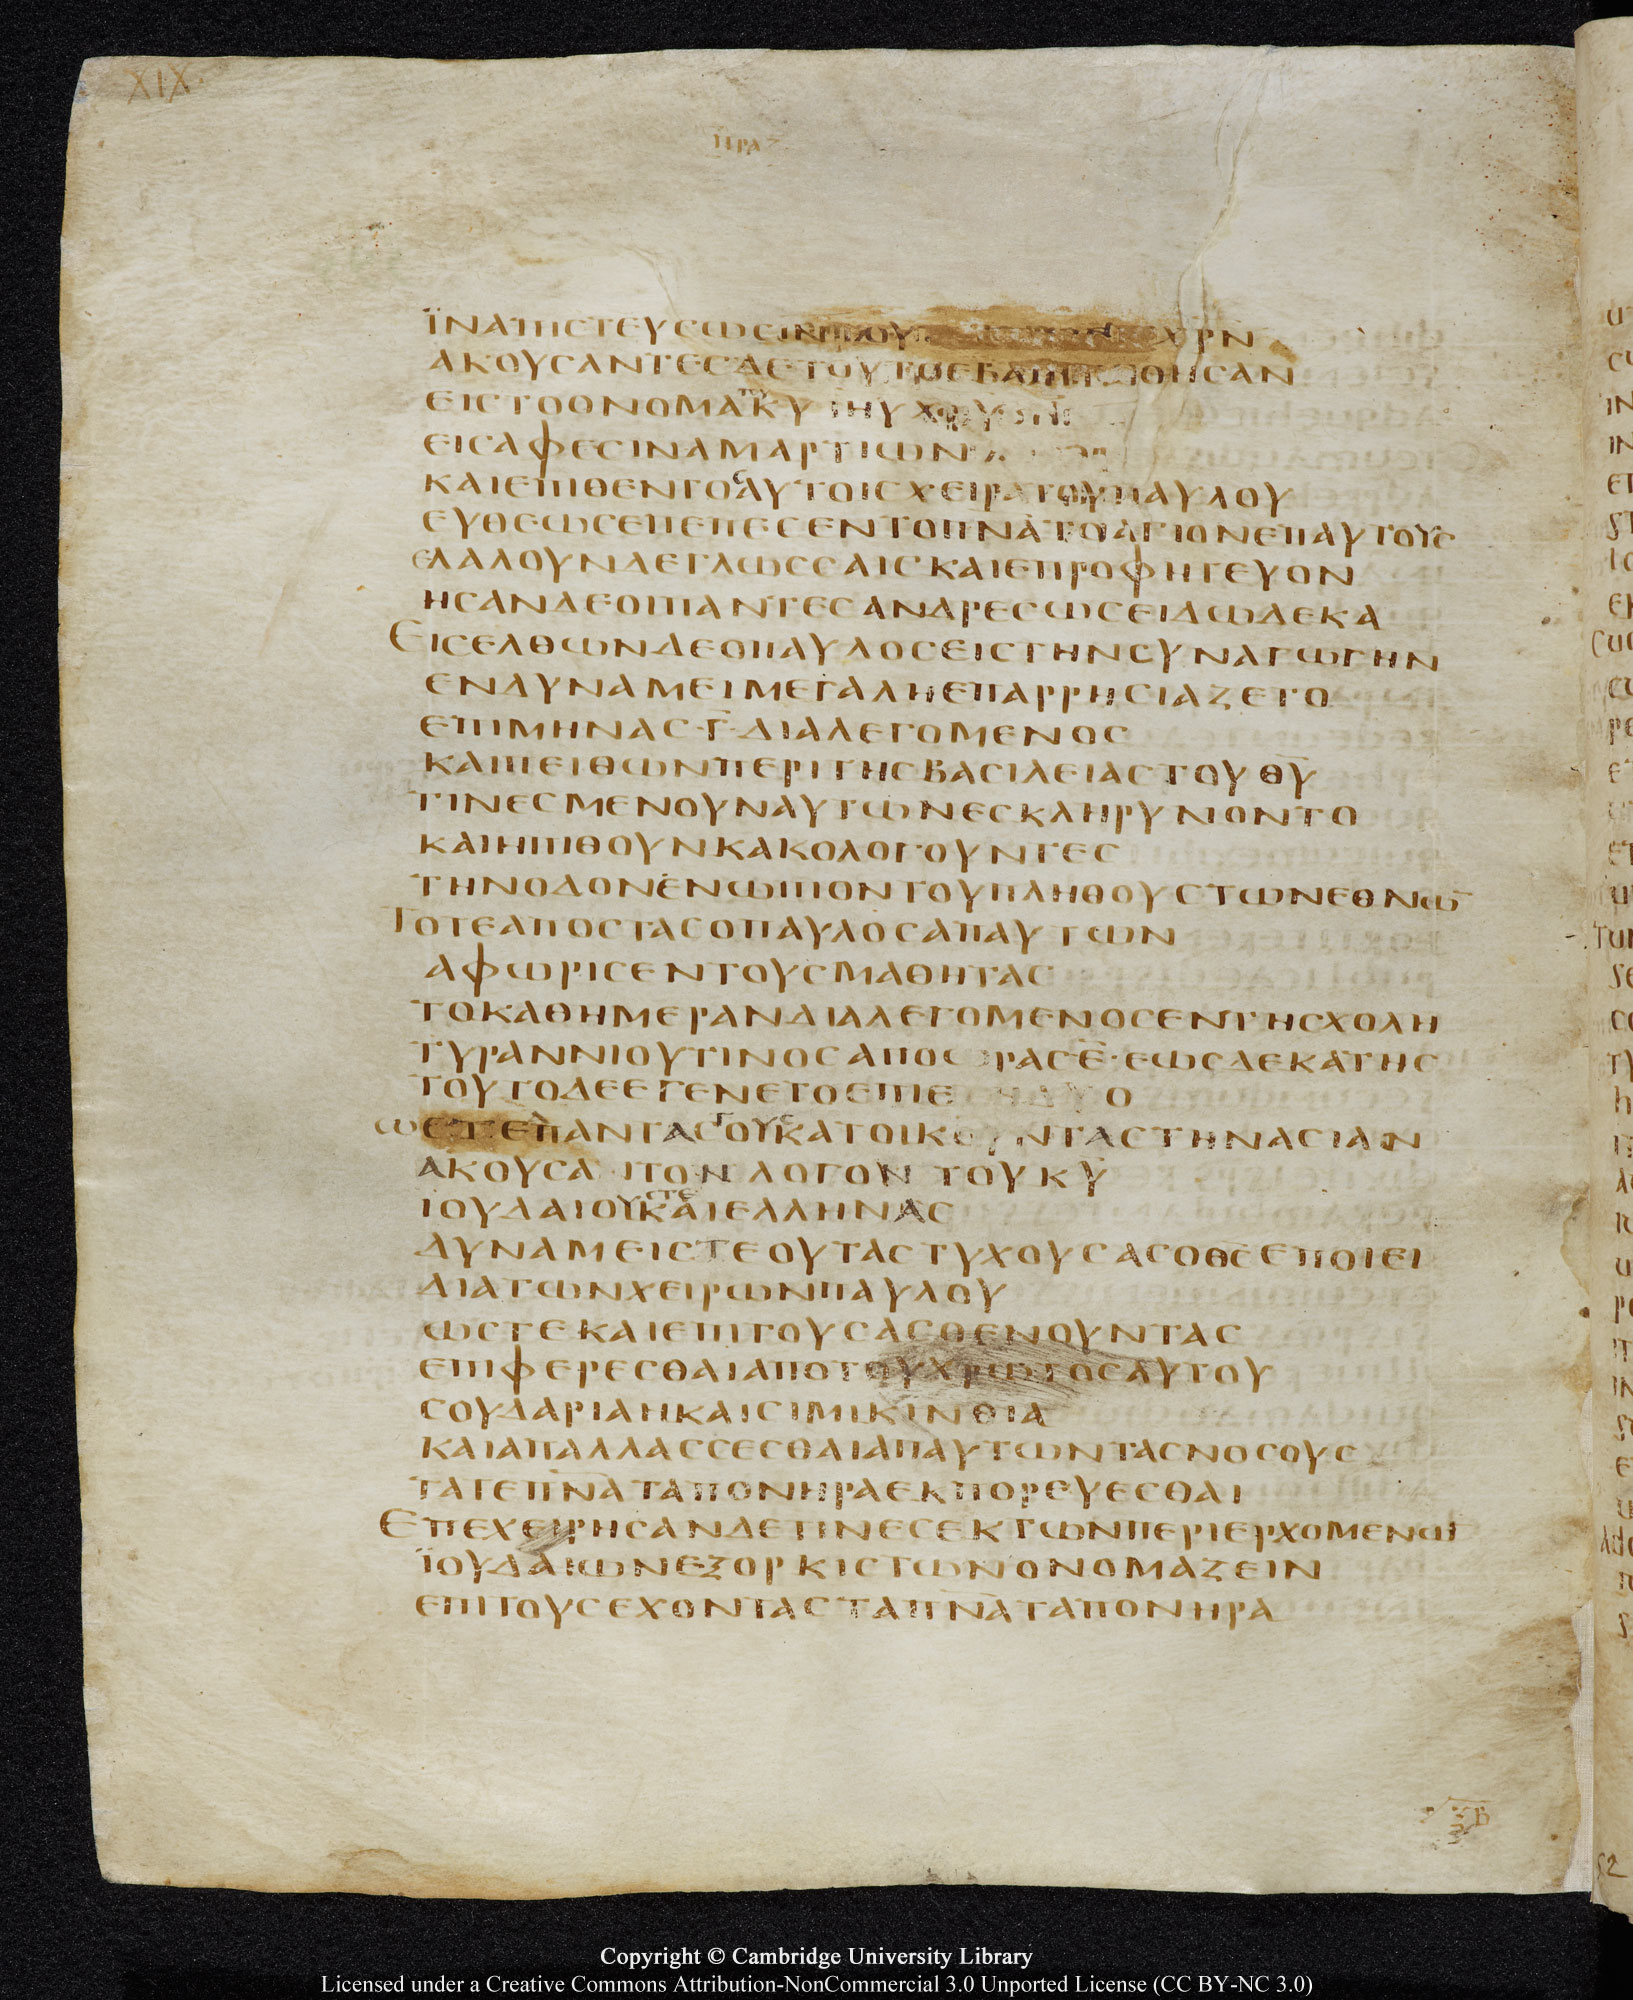 XIX
ΠΡΑΞ
ΪΝΑΠΙΣΤΕΥΣΩΣΙΝ ΧΡΝ
ΑΚΟΥΣΑΝΤΕΣΔΕΤΟΥΤΟΕΒΑΠΤΙΣΘΗΣΑΝ
ΕΙΣΤΟΟΝΟΜΑΤΟΥΚΥ ΙΗΥ ΧΡΥ
ΕΙΣΑΦΕΣΙΝΑΜΑΡΤΙΩΝ
ΚΑΙΕΠΙΘΕΝΤΟΣΑΥΤΟΙΣΧΕΙΡΑΤΟΥΠΑΥΛΟΥ
ΕΥΘΕΩΣΕΠΕΠΕΣΕΝΤΟΠΝΑΤΟΑΓΙΟΝΕΠΑΥΤΟΥΣ
ΕΛΑΛΟΥΝΔΕΓΛΩΣΣΑΙΣΚΑΙΕΠΡΟΦΗΤΕΥΟΝ
ΗΣΑΝΔΕΟΙΠΑΝΤΕΣΑΝΔΡΕΣΩΣΕΙΔΩΔΕΚΑ
ΕΙΣΕΛΘΩΝΔΕΟΠΑΥΛΟΣΕΙΣΤΗΝΣΥΝΑΓΩΓΗΝ
ΕΝΔΥΝΑΜΕΙΜΕΓΑΛΗΕΠΑΡΡΗΣΙΑΖΕΤΟ
ΕΠΙΜΗΝΑΣ·Γ·ΔΙΑΛΕΓΟΜΕΝΟΣ
ΚΑΙΠΕΙΘΩΝΠΕΡΙΤΗΣΒΑΣΙΛΕΙΑΣΤΟΥΘΥ
ΤΙΝΕΣΜΕΝΟΥΝΑΥΤΩΝΕΣΚΛΗΡΥΝΟΝΤΟ
ΚΑΙΗΠΙΘΟΥΝΚΑΚΟΛΟΓΟΥΝΤΕΣ
ΤΗΝΟΔΟΝΕΝΩΠΙΟΝΤΟΥΠΛΗΘΟΥΣΤΩΝΕΘΝΩ̅
ΤΟΤΕΑΠΟΣΤΑΣΟΠΑΥΛΟΣΑΠΑΥΤΩΝ
ΑΦΩΡΙΣΕΝΤΟΥΣΜΑΘΗΤΑΣ
ΤΟΚΑΘΗΜΕΡΑΝΔΙΑΛΕΓΟΜΕΝΟΣΕΝΤΗΣΧΟΛΗ
ΤΥΡΑΝΝΙΟΥΤΙΝΟΣΑΠΟΩΡΑΣΕ·ΕΩΣΔΕΚΑΤΗΣ
ΤΟΥΤΟΔΕΕΓΕΝΕΤΟΕΠΙΕΤΗΔΥΟ
ΩΣΤΕΠΑΝΤΑΣΤΟΥΣΚΑΤΟΙΚΟΥΝΤΑΣΤΗΝΑΣΙΑΝ
ΑΚΟΥΣΑΙΤΟΝΛΟΓΟΝΤΟΥΚΥ
ΙΟΥΔΑΙΟΥΣΤΕΚΑΙΕΛΛΗΝΑΣ
ΔΥΝΑΜΕΙΣΤΕΟΥΤΑΣΤΥΧΟΥΣΑΣΟΘΣΕΠΟΙΕΙ
ΔΙΑΤΩΝΧΕΙΡΩΝΠΑΥΛΟΥ
ΩΣΤΕΚΑΙΕΠΙΤΟΥΣΑΣΘΕΝΟΥΝΤΑΣ
ΕΠΙΦΕΡΕΣΘΑΙΑΠΟΤΟΥΧΡΩΤΟΣΑΥΤΟΥ
ΣΟΥΔΑΡΙΑΗΚΑΙΣΙΜΙΚΙΝΘΙΑ
ΚΑΙΑΠΑΛΛΑΣΣΕΣΘΑΙΑΠΑΥΤΩΝΤΑΣΝΟΣΟΥΣ
ΤΑΤΕΠΝΑΤΑΠΟΝΗΡΑΕΚΠΟΡΕΥΕΣΘΑΙ
ΕΠΕΧΕΙΡΗΣΑΝΔΕΤΙΝΕΣΕΚΤΩΝΠΕΡΙΕΡΧΟΜΕΝΩΝ
ΪΟΥΔΑΙΩΝΕΞΟΡΚΙΣΤΩΝΟΝΟΜΑΖΕΙΝ
ΕΠΙΤΟΥΣΕΧΟΝΤΑΣΤΑΠΝΑΤΑΠΟΝΗΡΑ
Copyright © Cambridge University Library
Licensed under a Creative Commons Attribution-NonCommercial 3.0 Unported License (CC BY-NC 3.0)